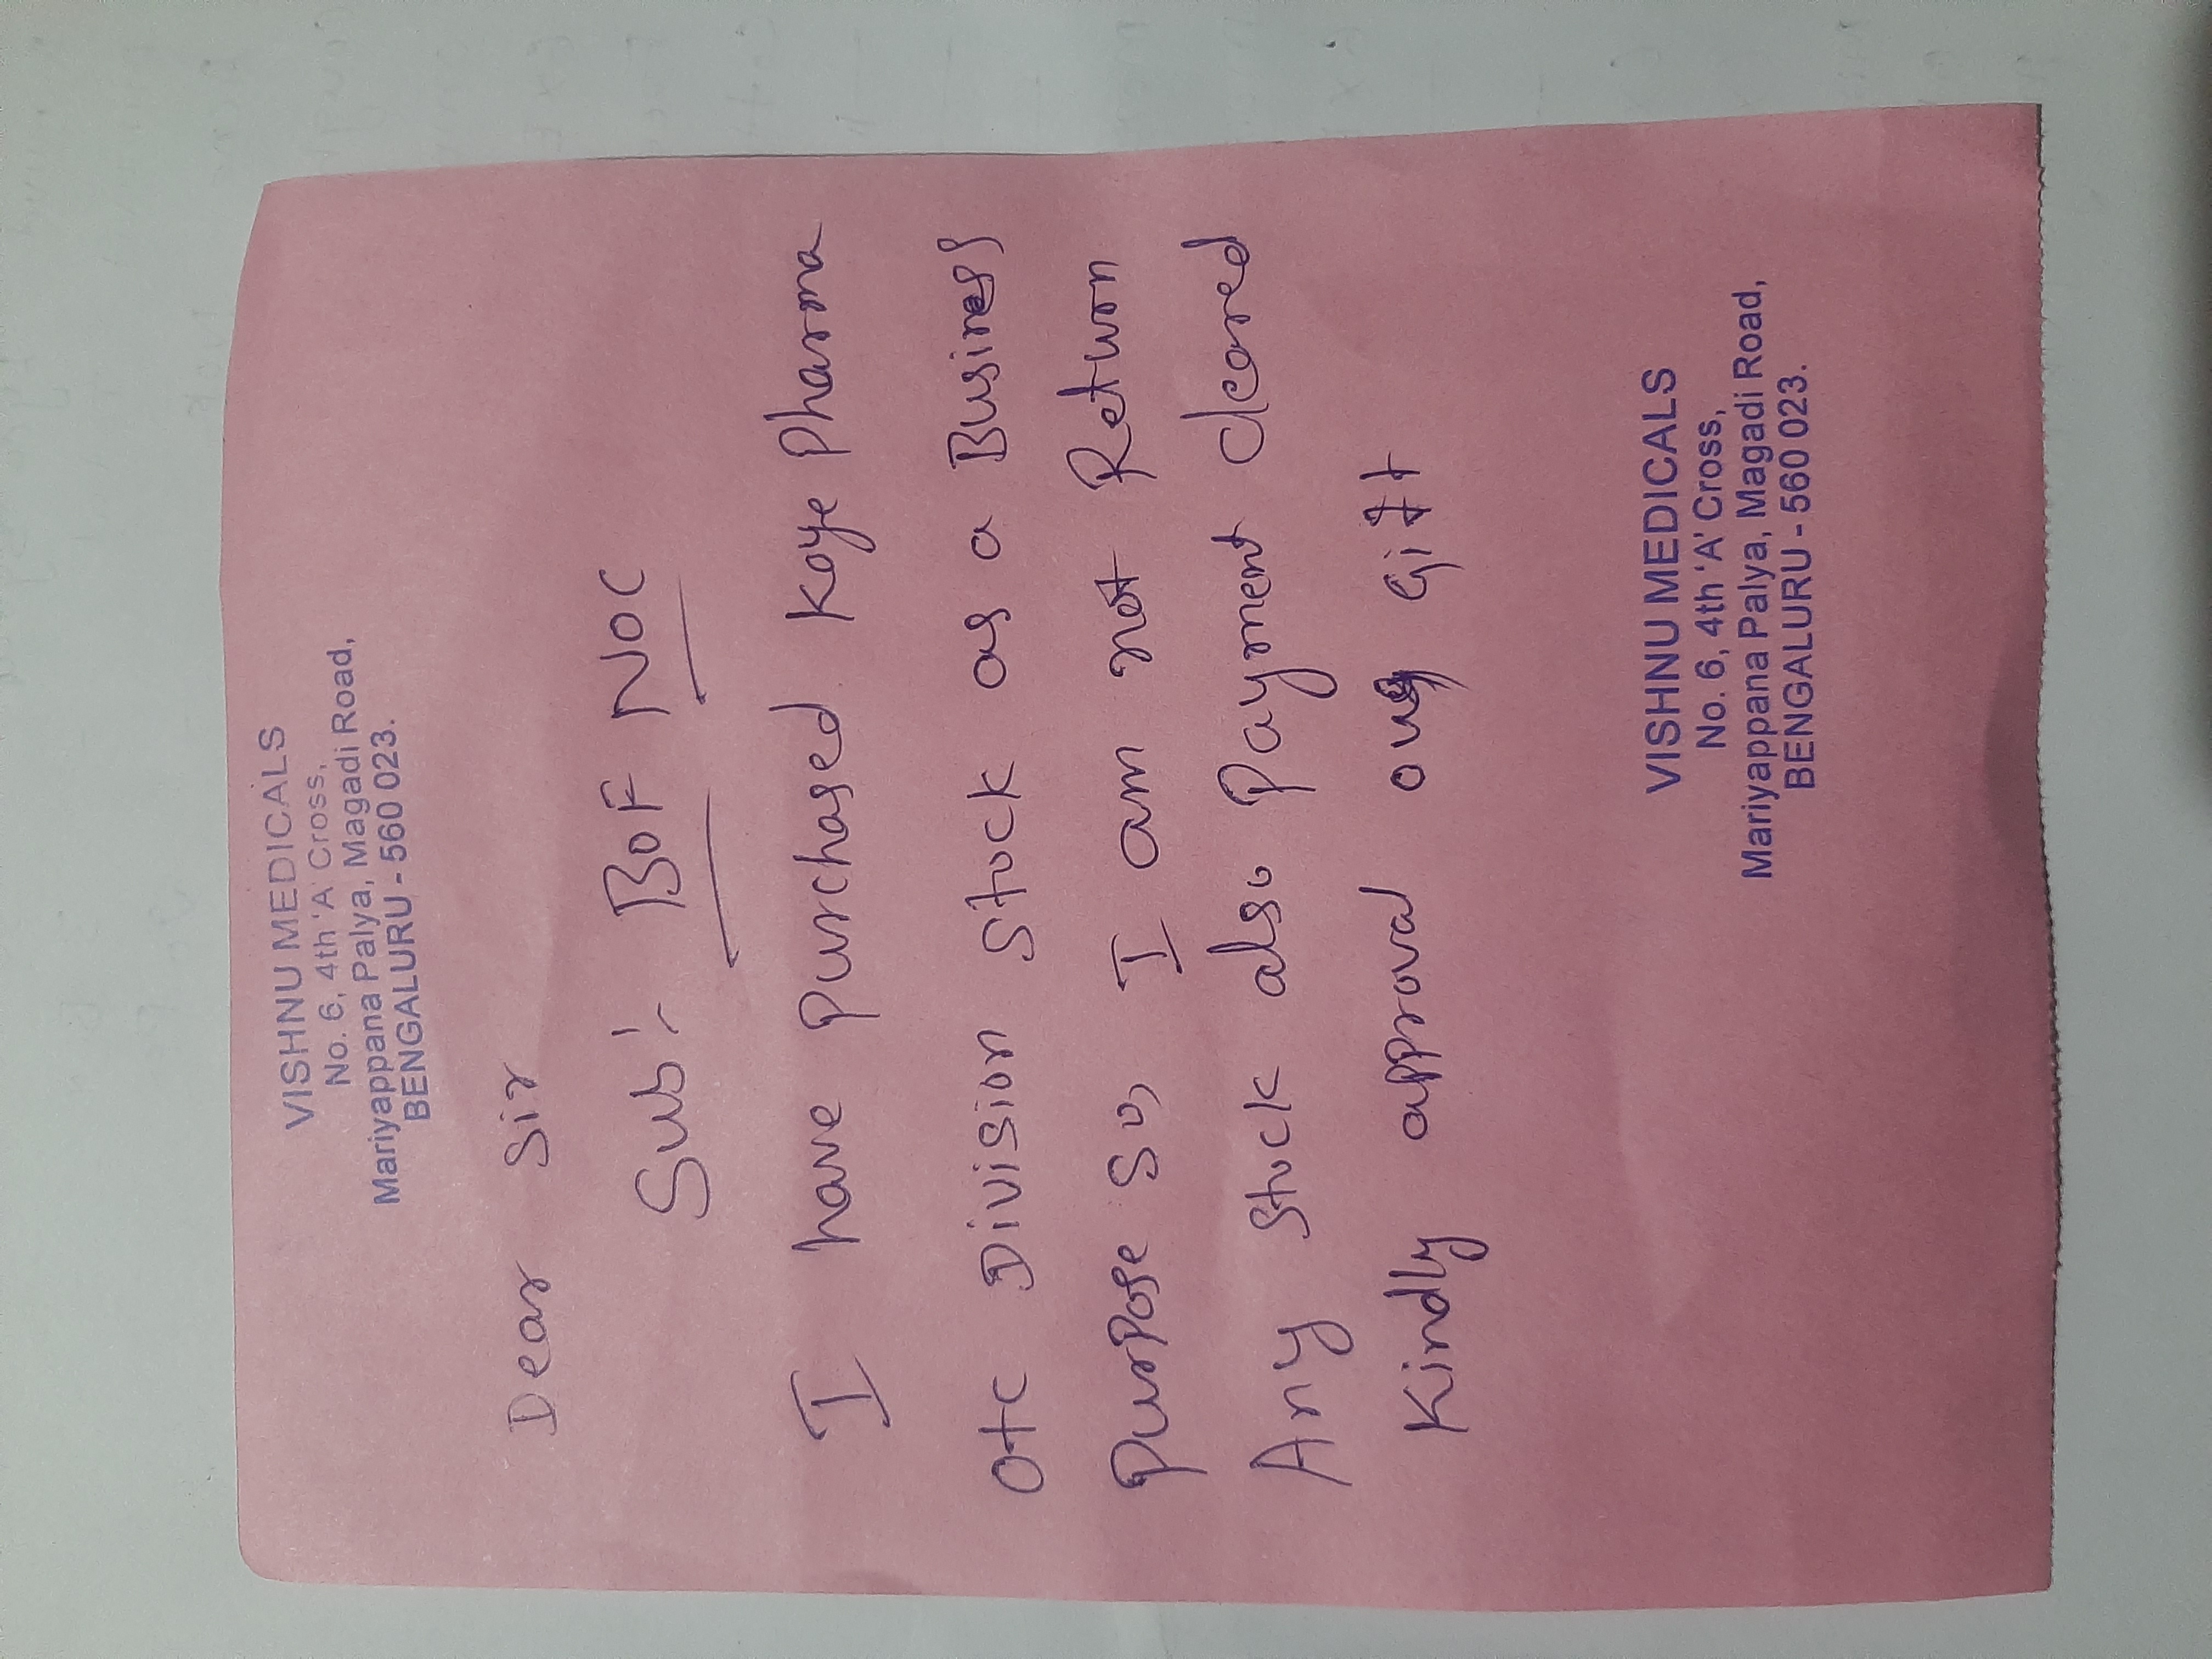 VISHNU MEDICALS
No. 6, 4th 'A' Cross,
Mariyappana Palya, Magadi Road,
BENGALURU - 560 023.
Dear Sir
Sub:- BOF NOC
I have purchased Kaye pharma
OTC Division stock as a Business
purpose so, I am not Return
Any stock also payment cleared
Kindly approval our Gift
VISHNU MEDICALS
No. 6, 4th 'A' Cross,
Mariyappana Palya, Magadi Road,
BENGALURU - 560 023.